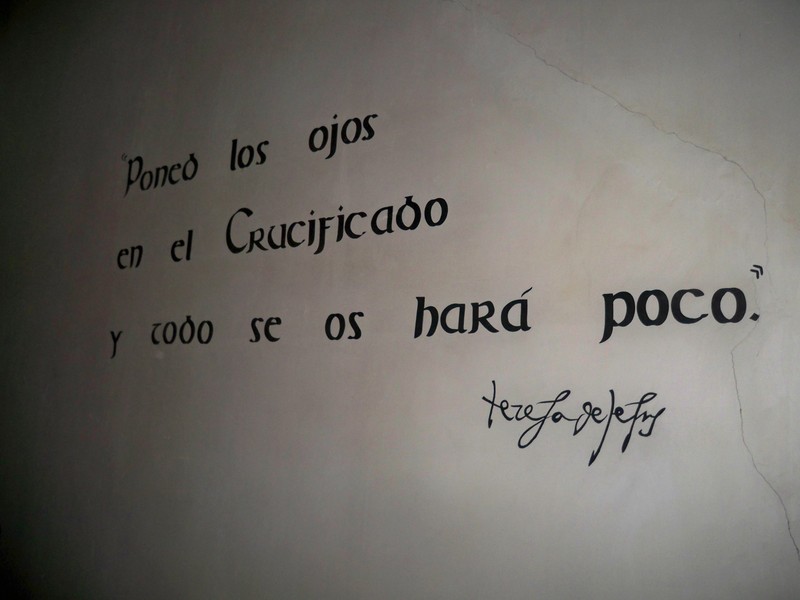 "Poned los ojos
en el Crucificado
y todo se os hará poco."
teresa de Jesus